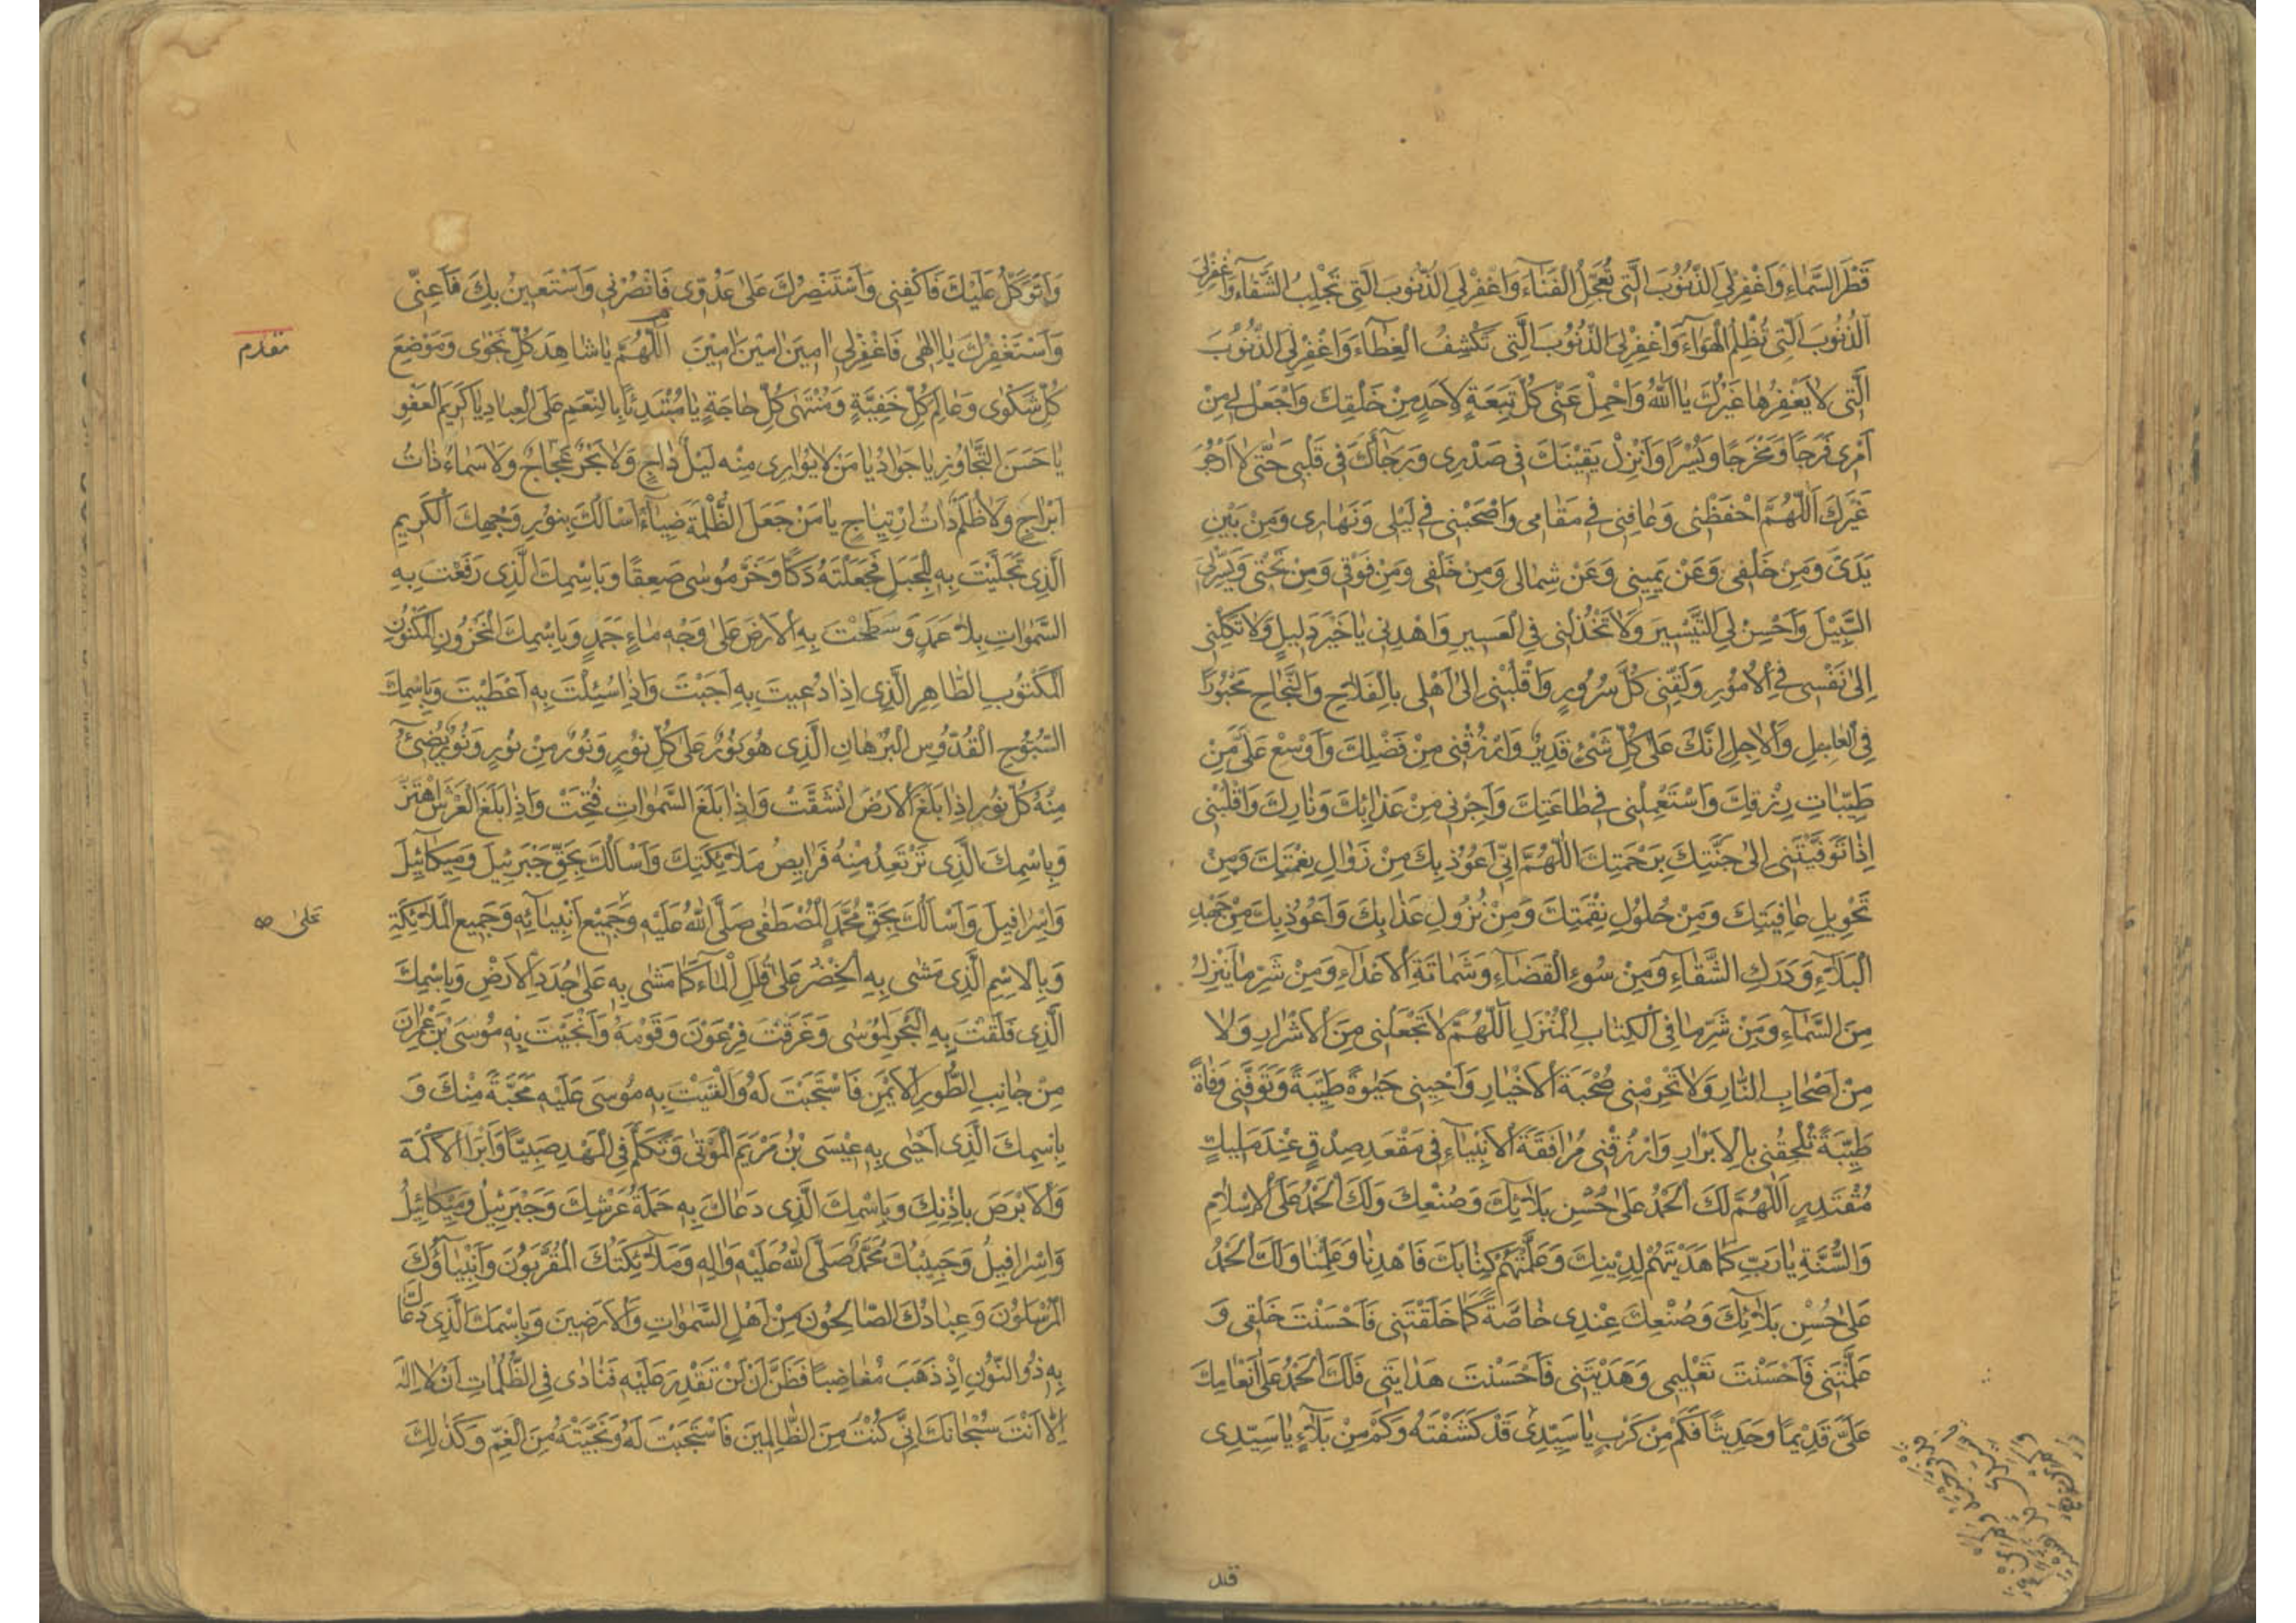 قَطْرَ السَّمٰاءِ وَاغْفِرْلِيَ الذُّنُوبَ الَّتِى تُعَجِّلُ الْفَنٰاءَ وَاغْفِرْلِيَ الذُّنُوبَ الَّتِى تَجْلِبُ الشَّقٰاءَ وَاغْفِرْلِيَ
الذُّنُوبَ الَّتِى تُظْلِمُ الْهَوٰاءَ وَاغْفِرْلِيَ الذُّنُوبَ الَّتِى تَكْشِفُ الْغِطٰاءَ وَاغْفِرْلِيَ الذُّنُوبَ
الَّتِى لٰا يَغْفِرُهٰا غَيْرُكَ يٰا اَللّٰهُ وَاحْمِلْ عَنّى كُلَّ تَبِعَةٍ لِاَحَدٍ مِنْ خَلْقِكَ وَاجْعَلْ لى مِنْ
اَمْرى فَرَجًا وَمَخْرَجًا وَيُسْرًا وَاَنْزِلْ يَقِيْنَكَ فى صَدْرِى وَرَجٰاءَكَ فى قَلْبى حَتّٰى لٰا اَرْجُوَ
غَيْرَكَ اَللّٰهُمَّ احْفَظْنى وَعٰافِنِى فى مَقٰامى وَاصْحَبْنى فى لَيْلى وَنَهٰارى وَمِنْ بَيْنِ
يَدَىَّ وَمِنْ خَلْفى وَعَنْ يَمِينى وَعَنْ شِمٰالى وَمِنْ خَلْفى وَمِنْ فَوْقى وَمِنْ تَحْتى وَيَسِّرْلىَ
السَّبِيْلَ وَاَحْسِنْ لِىَ التَّيْسِيرَ وَلٰا تَخْذُلْنى فِى الْعَسِيرِ وَاهْدِنى يٰا خَيْرَ دَلِيلٍ وَلٰا تَكِلْنِى
اِلىٰ نَفْسى فِى الْاُمُورِ وَلَقِّنِى كُلَّ سُرُورٍ وَاقْلِبْنى اِلىٰ اَهْلى بِالْفَلٰاحِ وَالنَّجٰاحِ مَحْبُورًا
فِى الْعٰاجِلِ وَالْاٰجِلِ اِنَّكَ عَلىٰ كُلِّ شَىْءٍ قَدِيرٌ وَارْزُقْنى مِنْ فَضْلِكَ وَاَوْسِعْ عَلَىَّ مِنْ
طَيِّبٰاتِ رِزْقِكَ وَاسْتَعْمِلْنى فى طٰاعَتِكَ وَاَجِرْنى مِنْ عَذٰابِكَ وَنٰارِكَ وَاقْلِبْنى
اِذٰا تَوَفَّيْتَنى اِلىٰ جَنَّتِكَ بِرَحْمَتِكَ اَللّٰهُمَّ اِنّى اَعُوْذُ بِكَ مِنْ زَوٰالِ نِعْمَتِكَ وَمِنْ
تَحْوِيلِ عٰافِيَتِكَ وَمِنْ حُلُولِ نِقْمَتِكَ وَمِنْ نُزُولِ عَذٰابِكَ وَاَعُوْذُ بِكَ مِنْ جَهْدِ
الْبَلٰاءِ وَدَرَكِ الشَّقٰاءِ وَمِنْ سُوءِ الْقَضٰاءِ وَشَمٰاتَةِ الْاَعْدٰاءِ وَمِنْ شَرِّ مٰا يَنْزِلُ
مِنَ السَّمٰاءِ وَمِنْ شَرِّ مٰا فِى الْكِتٰابِ الْمُنْزَلِ اَللّٰهُمَّ لٰا تَجْعَلْنى مِنَ الْاَشْرٰارِ وَلٰا
مِنْ اَصْحٰابِ النّٰارِ وَلٰا تَحْرِمْنى صُحْبَةَ الْاَخْيٰارِ وَاَحْيِنى حَيٰوةً طَيِّبَةً وَتَوَفَّنى وَفٰاةً
طَيِّبَةً تُلْحِقُنى بِالْاَبْرٰارِ وَارْزُقْنى مُرٰافَقَةَ الْاَنْبِيٰاءِ فى مَقْعَدِ صِدْقٍ عِنْدَ مَلِيكٍ
مُقْتَدِرٍ اَللّٰهُمَّ لَكَ الْحَمْدُ عَلىٰ حُسْنِ بَلٰائِكَ وَصُنْعِكَ وَلَكَ الْحَمْدُ عَلَى الْاِسْلٰامِ
وَالسُّنَّةِ يٰا رَبِّ كَمٰا هَدَيْتَهُمْ لِدِيْنِكَ وَعَلَّمْتَهُمْ كِتٰابَكَ فَاهْدِنٰا وَعَلِّمْنٰا وَلَكَ الْحَمْدُ
عَلىٰ حُسْنِ بَلٰائِكَ وَصُنْعِكَ عِنْدِى خٰاصَّةً كَمٰا خَلَقْتَنى فَاَحْسَنْتَ خَلْقى وَ
عَلَّمْتَنى فَاَحْسَنْتَ تَعْلِيمى وَهَدَيْتَنى فَاَحْسَنْتَ هِدٰايَتى فَلَكَ الْحَمْدُ عَلىٰ اِنْعٰامِكَ
عَلَىَّ قَدِيْمًا وَحَدِيثًا فَكَمْ مِنْ كَرْبٍ يٰا سَيِّدِى قَدْ كَشَفْتَهُ وَكَمْ مِنْ بَلٰاءٍ يٰا سَيِّدِى
قد
وَاَتَوَكَّلُ عَلَيْكَ فَاكْفِنى وَاَسْتَنْصِرُكَ عَلىٰ عَدُوّى فَانْصُرْنى وَاَسْتَعِينُ بِكَ فَاَعِنّى
وَاَسْتَغْفِرُكَ يٰا اِلٰهى فَاغْفِرْلى اٰمينَ اٰمينَ اٰمينَ اَللّٰهُمَّ يٰا شٰاهِدَ كُلِّ نَجْوٰى وَمَوْضِعَ
كُلِّ شَكْوٰى وَعٰالِمَ كُلِّ خَفِيَّةٍ وَمُنْتَهٰى كُلِّ حٰاجَةٍ يٰا مُبْتَدِئًا بِالنِّعَمِ عَلَى الْعِبٰادِ يٰا كَرِيمَ الْعَفْوِ
يٰا حَسَنَ التَّجٰاوُزِ يٰا جَوٰادُ يٰا مَنْ لٰا يُوٰارِى مِنْهُ لَيْلٌ دٰاجٍ وَلٰا بَحْرٌ عَجّٰاجٌ وَلٰا سَمٰاءٌ ذٰاتُ
اَبْرٰاجٍ وَلٰا ظُلَمٌ ذٰاتُ ارْتِيٰاجٍ يٰا مَنْ جَعَلَ الظُّلْمَةَ ضِيٰاءً اَسْاَلُكَ بِنُورِ وَجْهِكَ الْكَرِيمِ
الَّذِى تَجَلَّيْتَ بِهِ لِلْجَبَلِ فَجَعَلْتَهُ دَكًّا وَخَرَّ مُوسٰى صَعِقًا وَبِاسْمِكَ الَّذِى رَفَعْتَ بِهِ
السَّمٰوٰاتِ بِلٰا عَمَدٍ وَسَطَحْتَ بِهِ الْاَرْضَ عَلىٰ وَجْهِ مٰاءٍ جَمَدٍ وَبِاسْمِكَ الْمَخْزُونِ الْمَكْنُونِ
الْمَكْتُوبِ الطّٰاهِرِ الَّذِى اِذٰا دُعِيتَ بِهِ اَجَبْتَ وَاِذٰا سُئِلْتَ بِهِ اَعْطَيْتَ وَبِاسْمِكَ
السُّبُّوحِ الْقُدُّوسِ الْبُرْهٰانِ الَّذِى هُوَ نُورٌ عَلىٰ كُلِّ نُورٍ وَنُورٌ مِنْ نُورٍ وَنُورٌ يُضِىءُ
مِنْهُ كُلُّ نُورٍ اِذٰا بَلَغَ الْاَرْضَ انْشَقَّتْ وَاِذٰا بَلَغَ السَّمٰوٰاتِ فُتِحَتْ وَاِذٰا بَلَغَ الْعَرْشَ اهْتَزَّ
وَبِاسْمِكَ الَّذِى تَرْتَعِدُ مِنْهُ فَرٰايِصُ مَلٰائِكَتِكَ وَاَسْاَلُكَ بِحَقِّ جَبْرَئِيلَ وَمِيكٰائِيلَ
وَاِسْرٰافِيلَ وَاَسْاَلُكَ بِحَقِّ مُحَمَّدٍ الْمُصْطَفٰى صَلَّى اللّٰهُ عَلَيْهِ وَجَمِيعِ اَنْبِيٰائِهِ وَجَمِيعِ الْمَلٰائِكَةِ
وَبِالْاِسْمِ الَّذِى مَشٰى بِهِ الْخِضْرُ عَلىٰ قُلَلِ الْمٰاءِ كَمٰا مَشٰى بِهِ عَلىٰ جُدَدِ الْاَرْضِ وَبِاسْمِكَ
الَّذِى فَلَقْتَ بِهِ الْبَحْرَ لِمُوسٰى وَغَرَّقْتَ فِرْعَوْنَ وَقَوْمَهُ وَاَنْجَيْتَ بِهِ مُوسَى بْنَ عِمْرٰانَ
مِنْ جٰانِبِ الطُّورِ الْاَيْمَنِ فَاسْتَجَبْتَ لَهُ وَاَلْقَيْتَ بِهِ مُوسَى عَلَيْهِ مَحَبَّةً مِنْكَ وَ
بِاسْمِكَ الَّذِى اَحْيٰى بِهِ عِيْسَى بْنُ مَرْيَمَ الْمَوْتٰى وَتَكَلَّمَ فِى الْمَهْدِ صَبِيًّا وَاَبْرَاَ الْاَكْمَهَ
وَالْاَبْرَصَ بِاِذْنِكَ وَبِاسْمِكَ الَّذِى دَعٰاكَ بِهِ حَمَلَةُ عَرْشِكَ وَجَبْرَئِيلُ وَمِيكٰائِيلُ
وَاِسْرٰافِيلُ وَحَبِيبُكَ مُحَمَّدٌ صَلَّى اللّٰهُ عَلَيْهِ وَاٰلِهِ وَمَلٰائِكَتُكَ الْمُقَرَّبُونَ وَاَنْبِيٰاؤُكَ
الْمُرْسَلُونَ وَعِبٰادُكَ الصّٰالِحُونَ مِنْ اَهْلِ السَّمٰوٰاتِ وَالْاَرَضِينَ وَبِاسْمِكَ الَّذِى دَعٰاكَ
بِهِ ذُو النُّونِ اِذْ ذَهَبَ مُغٰاضِبًا فَظَنَّ اَنْ لَنْ تَقْدِرَ عَلَيْهِ فَنٰادٰى فِى الظُّلُمٰاتِ اَنْ لٰا اِلٰهَ
اِلّٰا اَنْتَ سُبْحٰانَكَ اِنّى كُنْتُ مِنَ الظّٰالِمِينَ فَاسْتَجَبْتَ لَهُ وَنَجَّيْتَهُ مِنَ الْغَمِّ وَكَذٰلِكَ